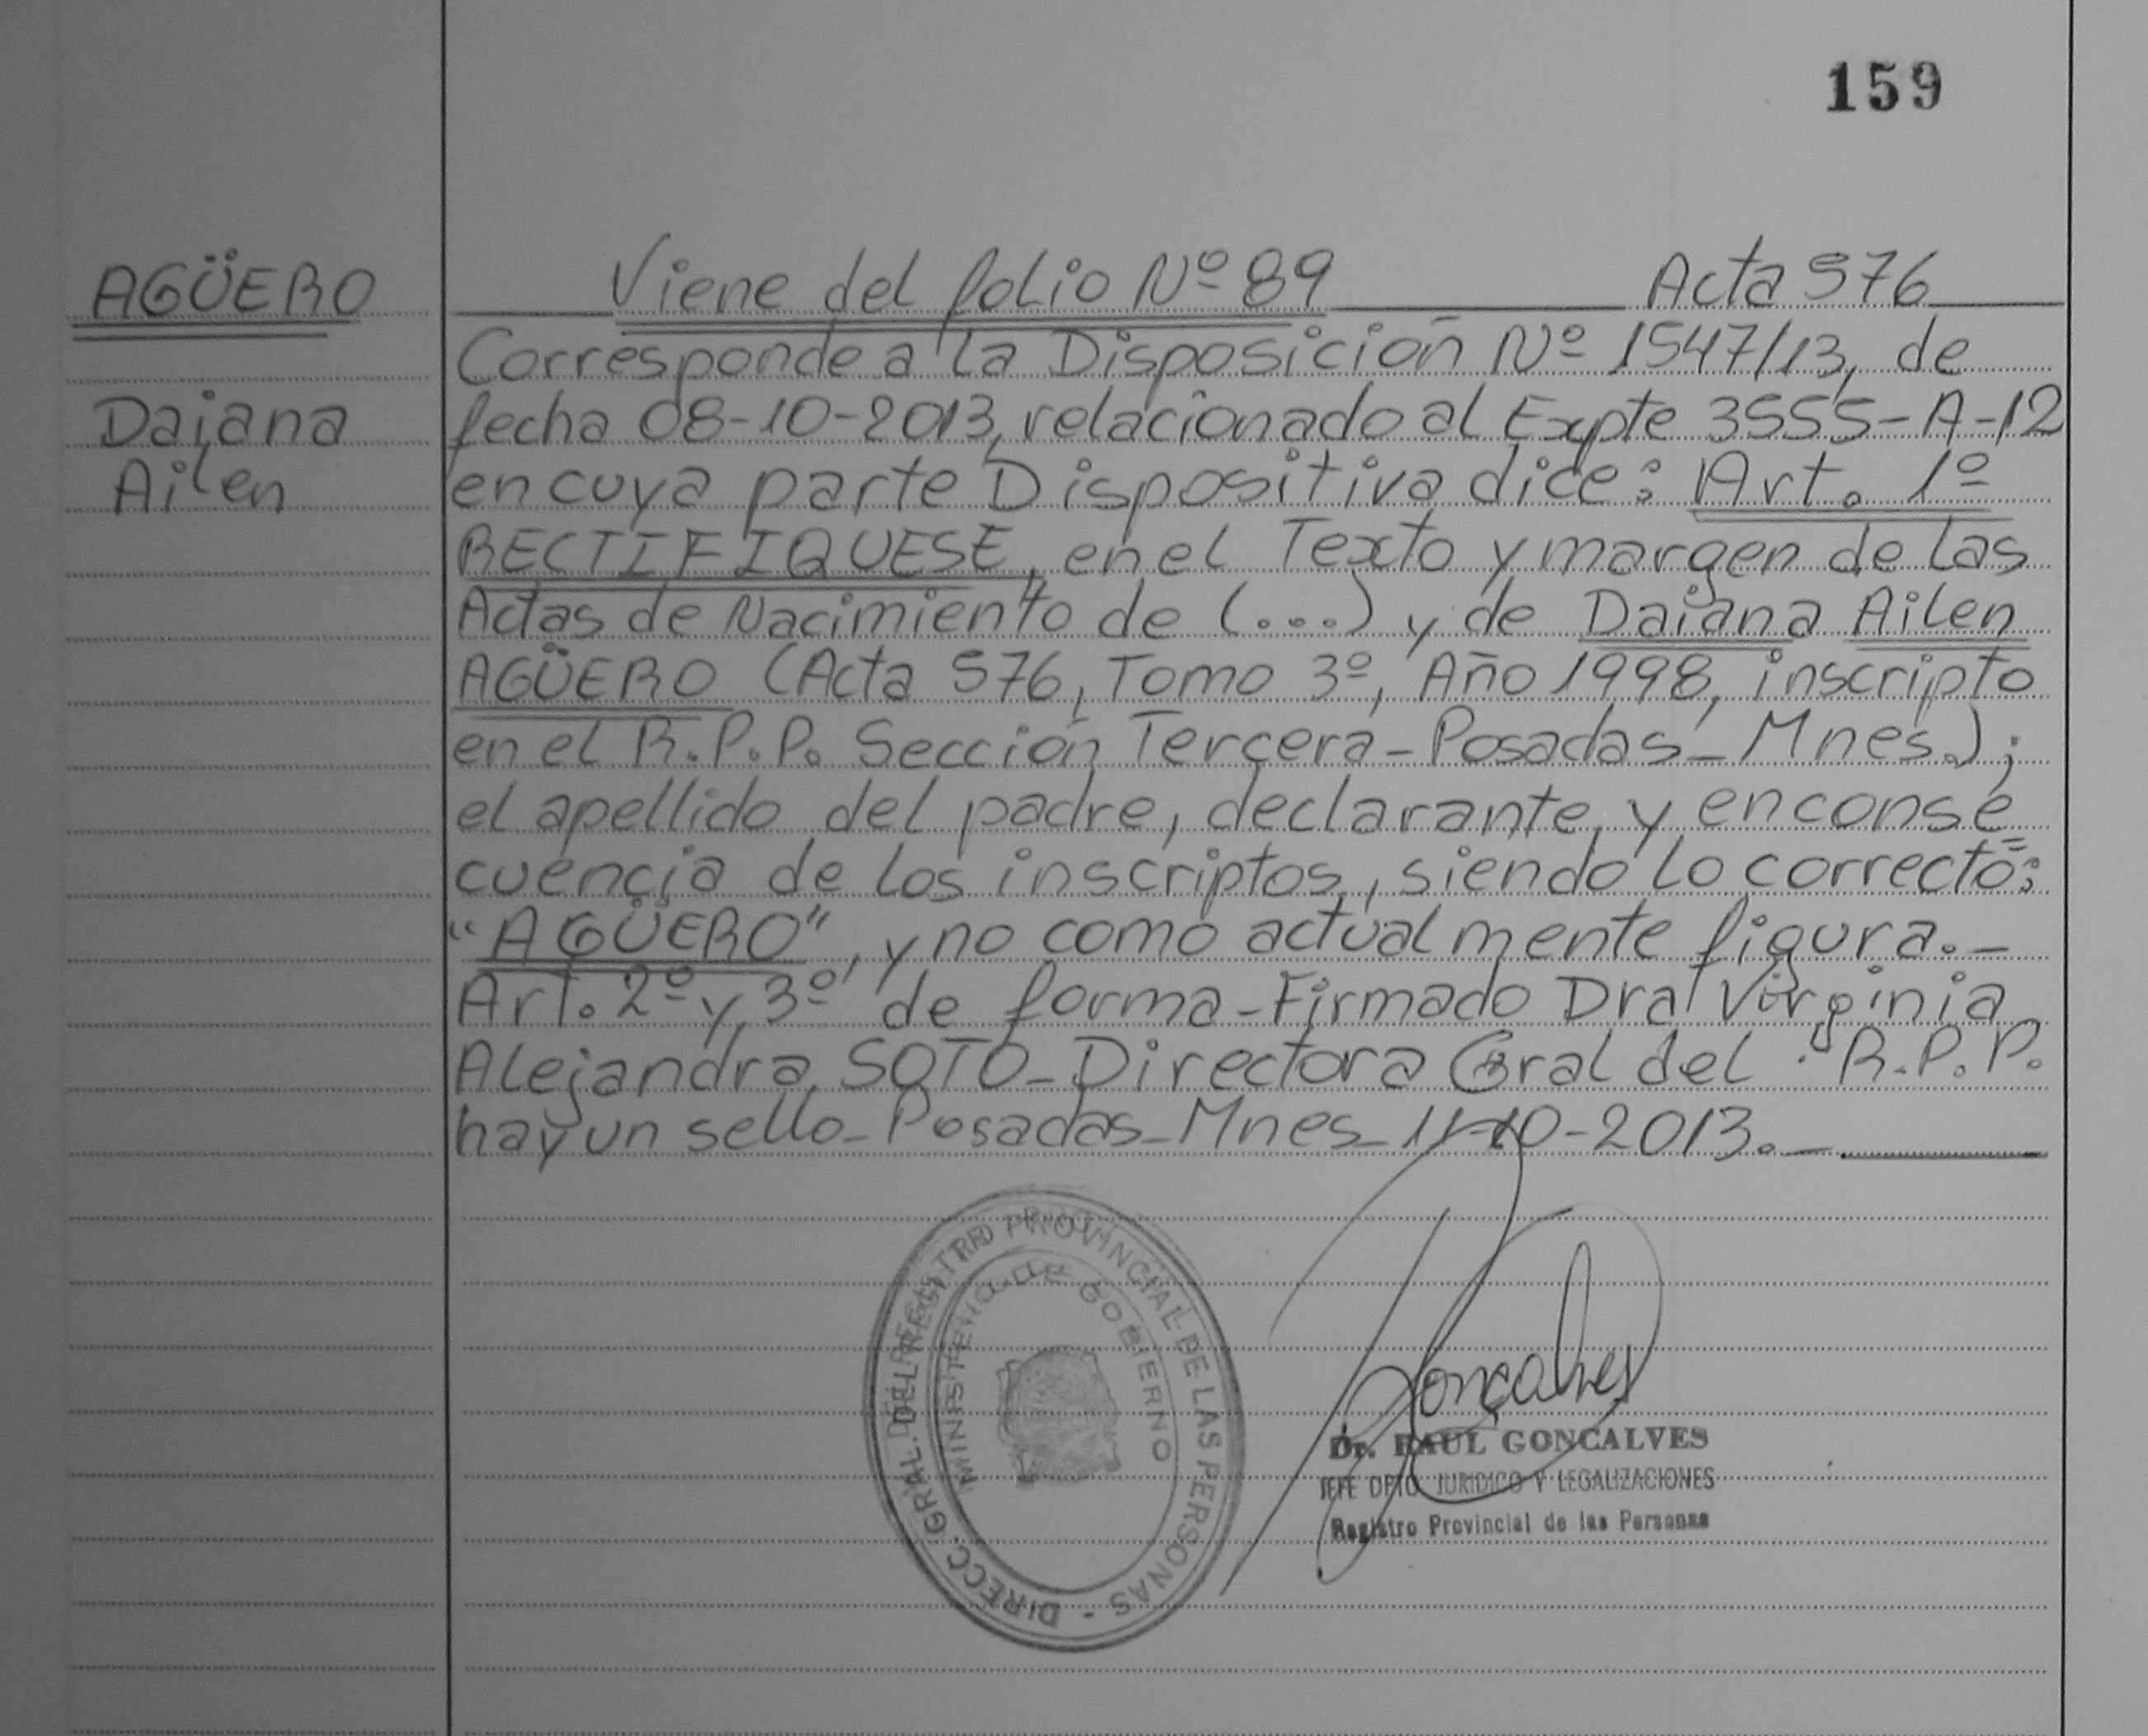 159
AGÜERO
Daiana
Ailen
Viene del folio Nº 89 Acta 576
Corresponde a la Disposición Nº 1547/13, de
fecha 08-10-2013, relacionado al Expte 3555-A-12
en cuya parte Dispositiva dice: Art. 1º
RECTIFIQUESE, en el Texto y margen de las
Actas de Nacimiento de (...) y de Daiana Ailen
AGÜERO (Acta 576, Tomo 3º, Año 1998, inscripto
en el R.P.P. Sección Tercera-Posadas-Mnes.);
el apellido del padre, declarante, y en conse
cuencia de los inscriptos, siendo lo correcto:
"AGÜERO", y no como actualmente figura.-
Art. 2º y 3º de forma-Firmado Dra Virginia
Alejandra SOTO-Directora Gral del R.P.P.
hay un sello-Posadas-Mnes-11-10-2013.-
DIRECC. GRAL. DEL REGISTRO PROVINCIAL DE LAS PERSONAS -
MINISTERIO DE GOBIERNO
Goncalves
Dr. RAUL GONCALVES
JEFE DPTO JURIDICO Y LEGALIZACIONES
Registro Provincial de las Personas